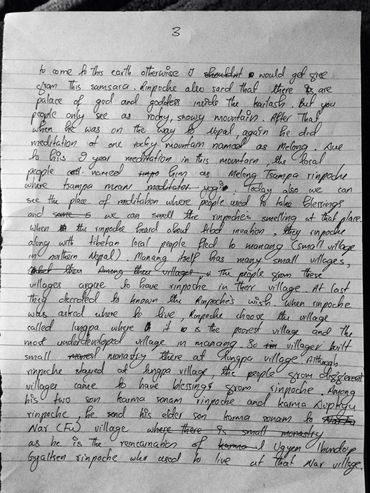 3
to come to this earth otherwise I shouldnt would get free
from this samsara. Rinpoche also said that there is are
palace of god and goddess inside the kailash. But you
people only see as rocky, snowy mountain. After That
when he was on the way to Nepal, again he did
meditation at one rocky mountain named as Melong. Due
to his 9 year meditation in this mountain, the local
people named Him as Melong Tsampa rinpoche
where tsampa mean meditator yogi. Today also we can
see the place of meditation where people used to take blessings
and we can smell the rinpoche's smelling at that place.
When the rinpoche heard about tibet invation, they rinpoche
along with tibetan local people fled to manang (small village
in northern Nepal). Manang itself has many small villages,
Among these villages, the people from these
villages argue to have rinpoche in their village. At last
they decided to known the Rinpoche's wish. When rinpoche
was asked where to live, Rinpoche choose the village
called lungpa where it is the poorest village and the
most undeveloped village in manang. So villager built
small monastry there at lungpa village. Although
rinpoche stayed at lungpa village, the people from different
villages came to have blessings from rinpoche. Among
his two son karma sonam rinpoche and karma
rinpoche, he send his elder son karma sonam to
Nar village where there is small monastry
as he is the reincarnation of Ugyen lhundup
Gyaltsen rinpoche who used to live at that Nar village.